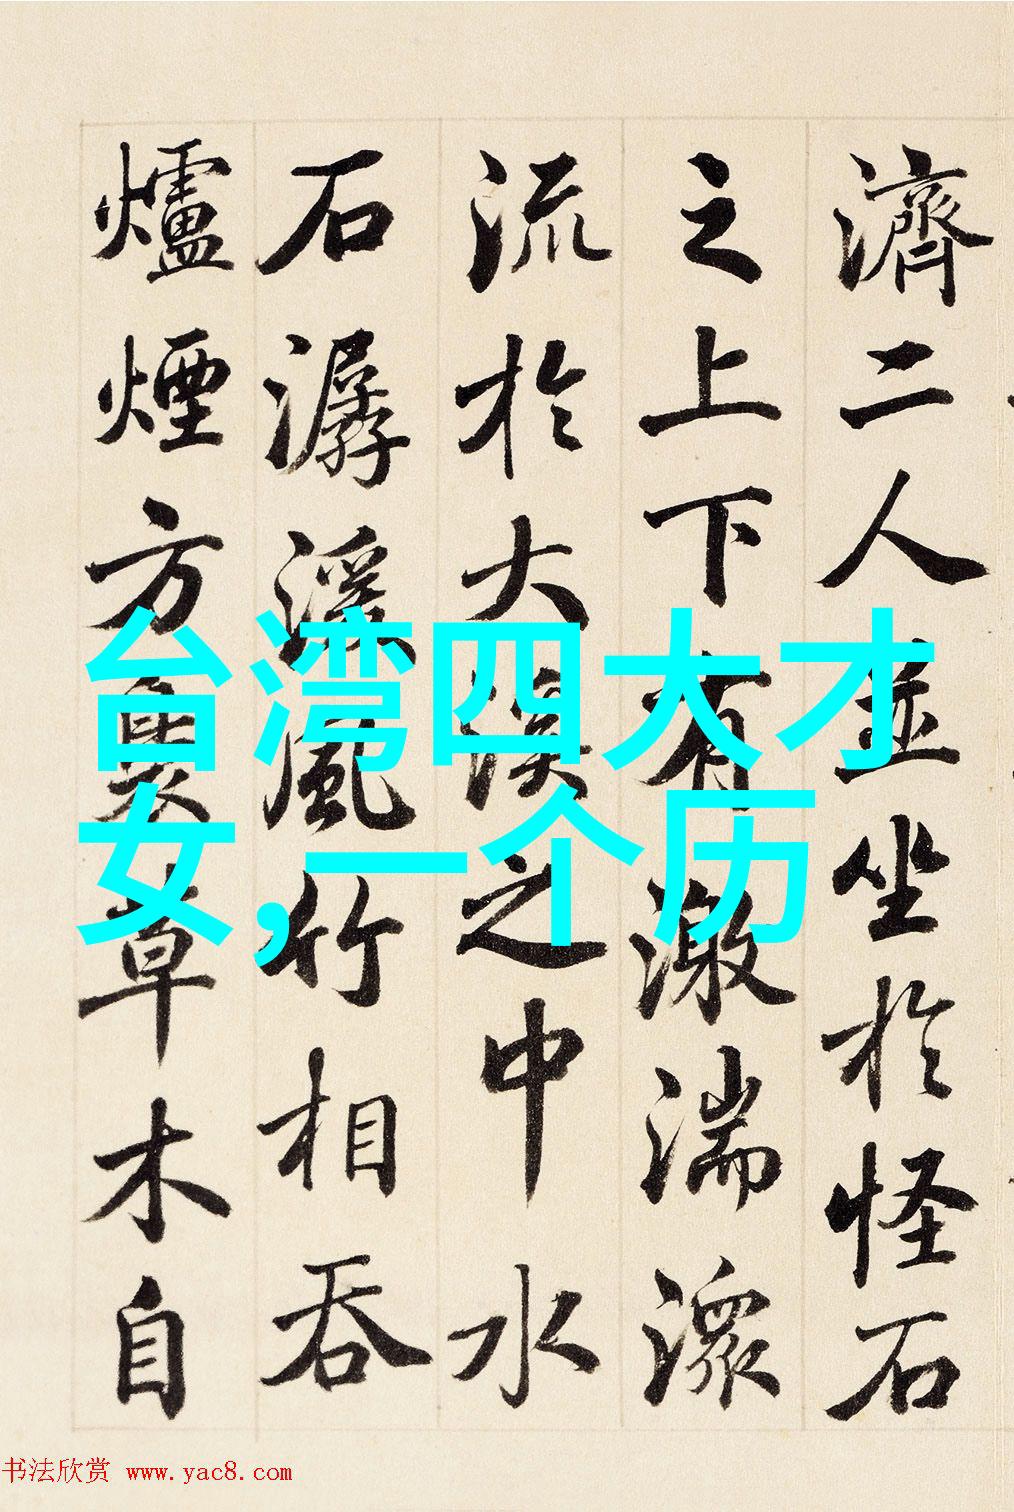 濟二人並坐於怪石
之上下有激湍潀
流於大溪之中水
石潺湲風竹相吞
爐煙方裊草木自
台湾四大才
女,一个历
书法欣赏 www.yac8.com